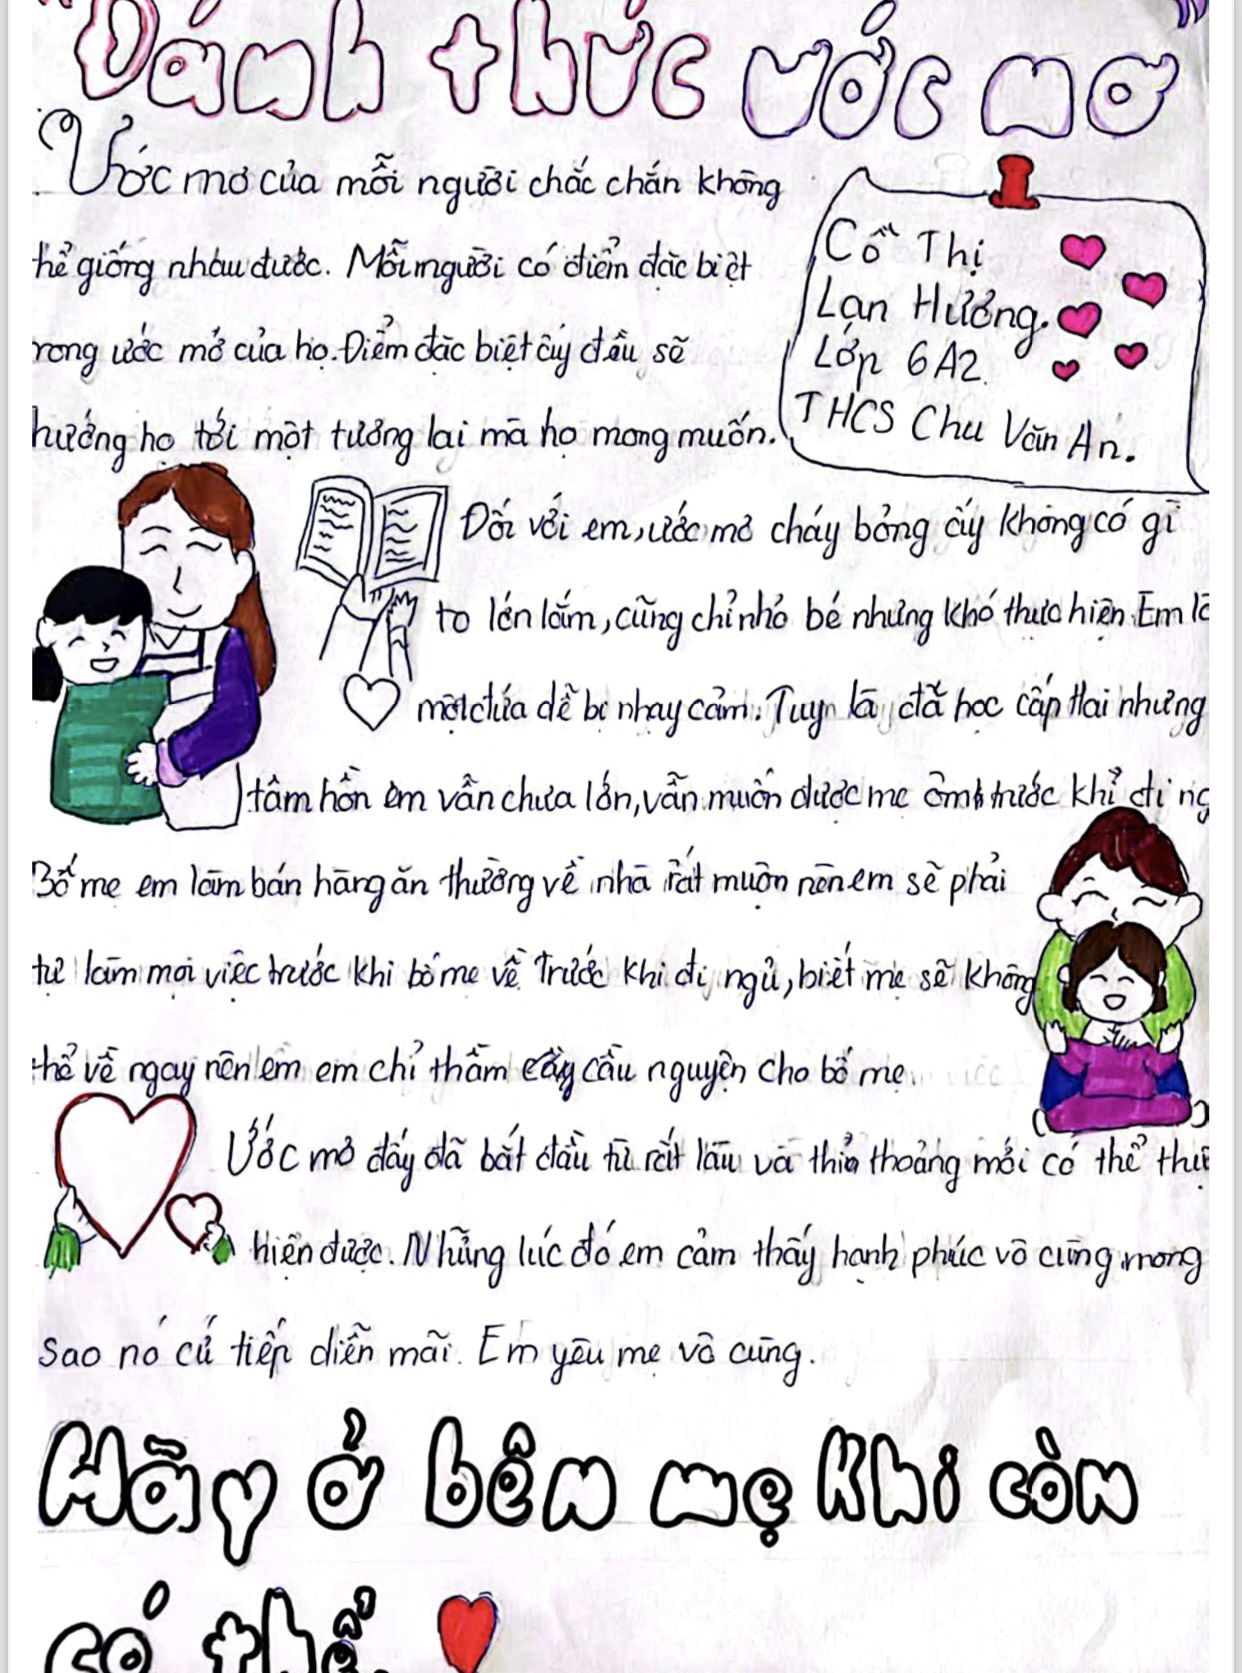 "Đánh thức ước mơ"
Ước mơ của mỗi người chắc chắn không
thể giống nhau được. Mỗi người có điểm đặc biệt
rong ước mơ của họ. Điểm đặc biệt ấy đều sẽ
hướng họ tới một tương lai mà họ mong muốn.
Cồ Thị
Lan Hương.
Lớp 6A2.
THCS Chu Văn An.
Đối với em, ước mơ cháy bỏng ấy không có gì
to lớn lắm, cũng chỉ nhỏ bé nhưng khó thực hiện. Em là
một đứa dễ bị nhạy cảm. Tuy là đã học cấp Hai nhưng
tâm hồn em vẫn chưa lớn, vẫn muốn được mẹ ôm trước khi đi ng
Bố mẹ em làm bán hàng ăn thường về nhà rất muộn nên em sẽ phải
tự làm mọi việc trước khi bố mẹ về. Trước khi đi ngủ, biết mẹ sẽ không
thể về ngay nên em em chỉ thầm cầu nguyện cho bố mẹ.
Ước mơ đấy đã bắt đầu từ rất lâu và thi thoảng mới có thể thực
hiện được. Những lúc đó em cảm thấy hạnh phúc vô cùng, mong
sao nó cứ tiếp diễn mãi. Em yêu mẹ vô cùng.
Hãy ở bên mẹ khi còn
có thể.